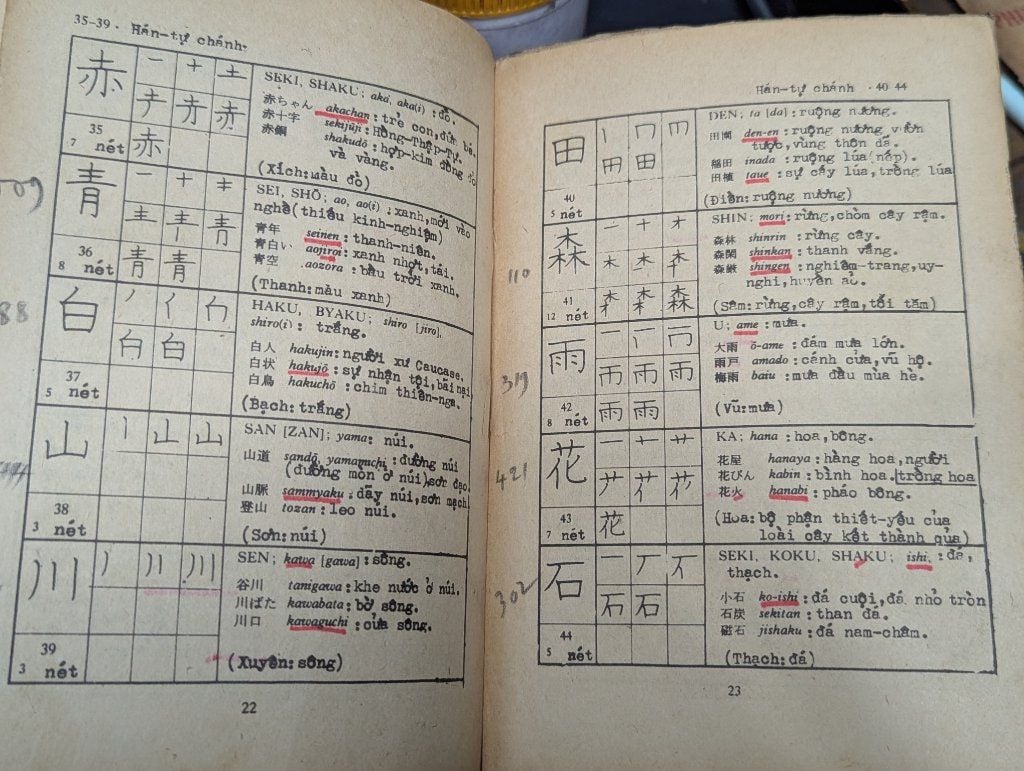 35-39. Hán-tự chánh.
赤
35
7 nét
SEKI, SHAKU; aka, aka(i) : đỏ.
赤ちゃん akachan: trẻ con, đứa bé.
赤十字 sekijūji: Hồng-Thập-Tự.
赤銅 shakudō: hợp-kim đồng đỏ
và vàng.
(Xích: màu đỏ)
青
36
8 nét
SEI, SHŌ; ao, ao(i) : xanh, mới vào
nghề (thiếu kinh-nghiệm)
青年 seinen : thanh-niên.
青白い aojiroi: xanh nhợt, tái.
青空 aozora : bầu trời xanh.
(Thanh: màu xanh)
88
白
37
5 nét
HAKU, BYAKU; shiro [jiro],
shiro(i) : trắng.
白人 hakujin: người xứ Caucase.
白状 hakujō : sự nhận tội, bãi nại
白鳥 hakuchō : chim thiên-nga.
(Bạch: trắng)
山
38
3 nét
SAN [ZAN]; yama: núi.
山道 sandō, yamamichi : đường núi
(đường mòn ở núi), sơn đạo.
山脈 sammyaku : dãy núi, sơn mạch
登山 tozan : leo núi.
(Sơn: núi)
川
39
3 nét
SEN; kawa [gawa] : sông.
谷川 tanigawa : khe nước ở núi.
川ばた kawabata : bờ sông.
川口 kawaguchi : cửa sông.
(Xuyên: sông)
22
Hán-tự chánh 40 44
田
40
5 nét
DEN; ta [da] : ruộng nương.
田園 den-en : ruộng nương vườn
tược, vùng thôn dã.
稲田 inada : ruộng lúa (nếp).
田植 taue : sự cấy lúa, trồng lúa
(Điền: ruộng nương)
110
森
41
12 nét
SHIN; mori : rừng, chòm cây rậm.
森林 shinrin : rừng cây.
森閑 shinkan : thanh vắng.
森厳 shingen : nghiêm-trang, uy-
nghi, huyền ảo.
(Sâm: rừng, cây rậm, tối tăm)
319
雨
42
8 nét
U; ame : mưa.
大雨 ō-ame : đám mưa lớn.
雨戸 amado : cánh cửa, vũ hộ.
梅雨 baiu : mưa đầu mùa hè.
(Vũ: mưa)
421
花
43
7 nét
KA; hana : hoa, bông.
花屋 hanaya : hàng hoa, người
花びん kabin : bình hoa. trồng hoa
花火 hanabi : pháo bông.
(Hoa: bộ phận thiết-yếu của
loài cây kết thành quả)
302
石
44
5 nét
SEKI, KOKU, SHAKU; ishi, : đá,
thạch.
小石 ko-ishi : đá cuội, đá nhỏ tròn
石炭 sekitan : than đá.
磁石 jishaku : đá nam-châm.
(Thạch: đá)
23